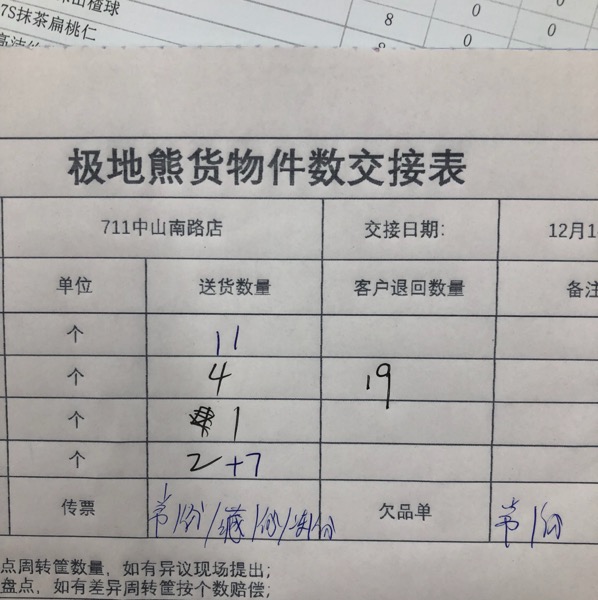 山楂球
8 0 0
7S抹茶扁桃仁
8 0 0
极地熊货物件数交接表
711中山南路店 交接日期: 12月1
单位 送货数量 客户退回数量 备注
个 11
个 4 19
个 1
个 2+7
传票 常1份/ 1份/冻1份 欠品单 常1份
点周转筐数量，如有异议现场提出;
盘点，如有差异周转筐按个数赔偿;